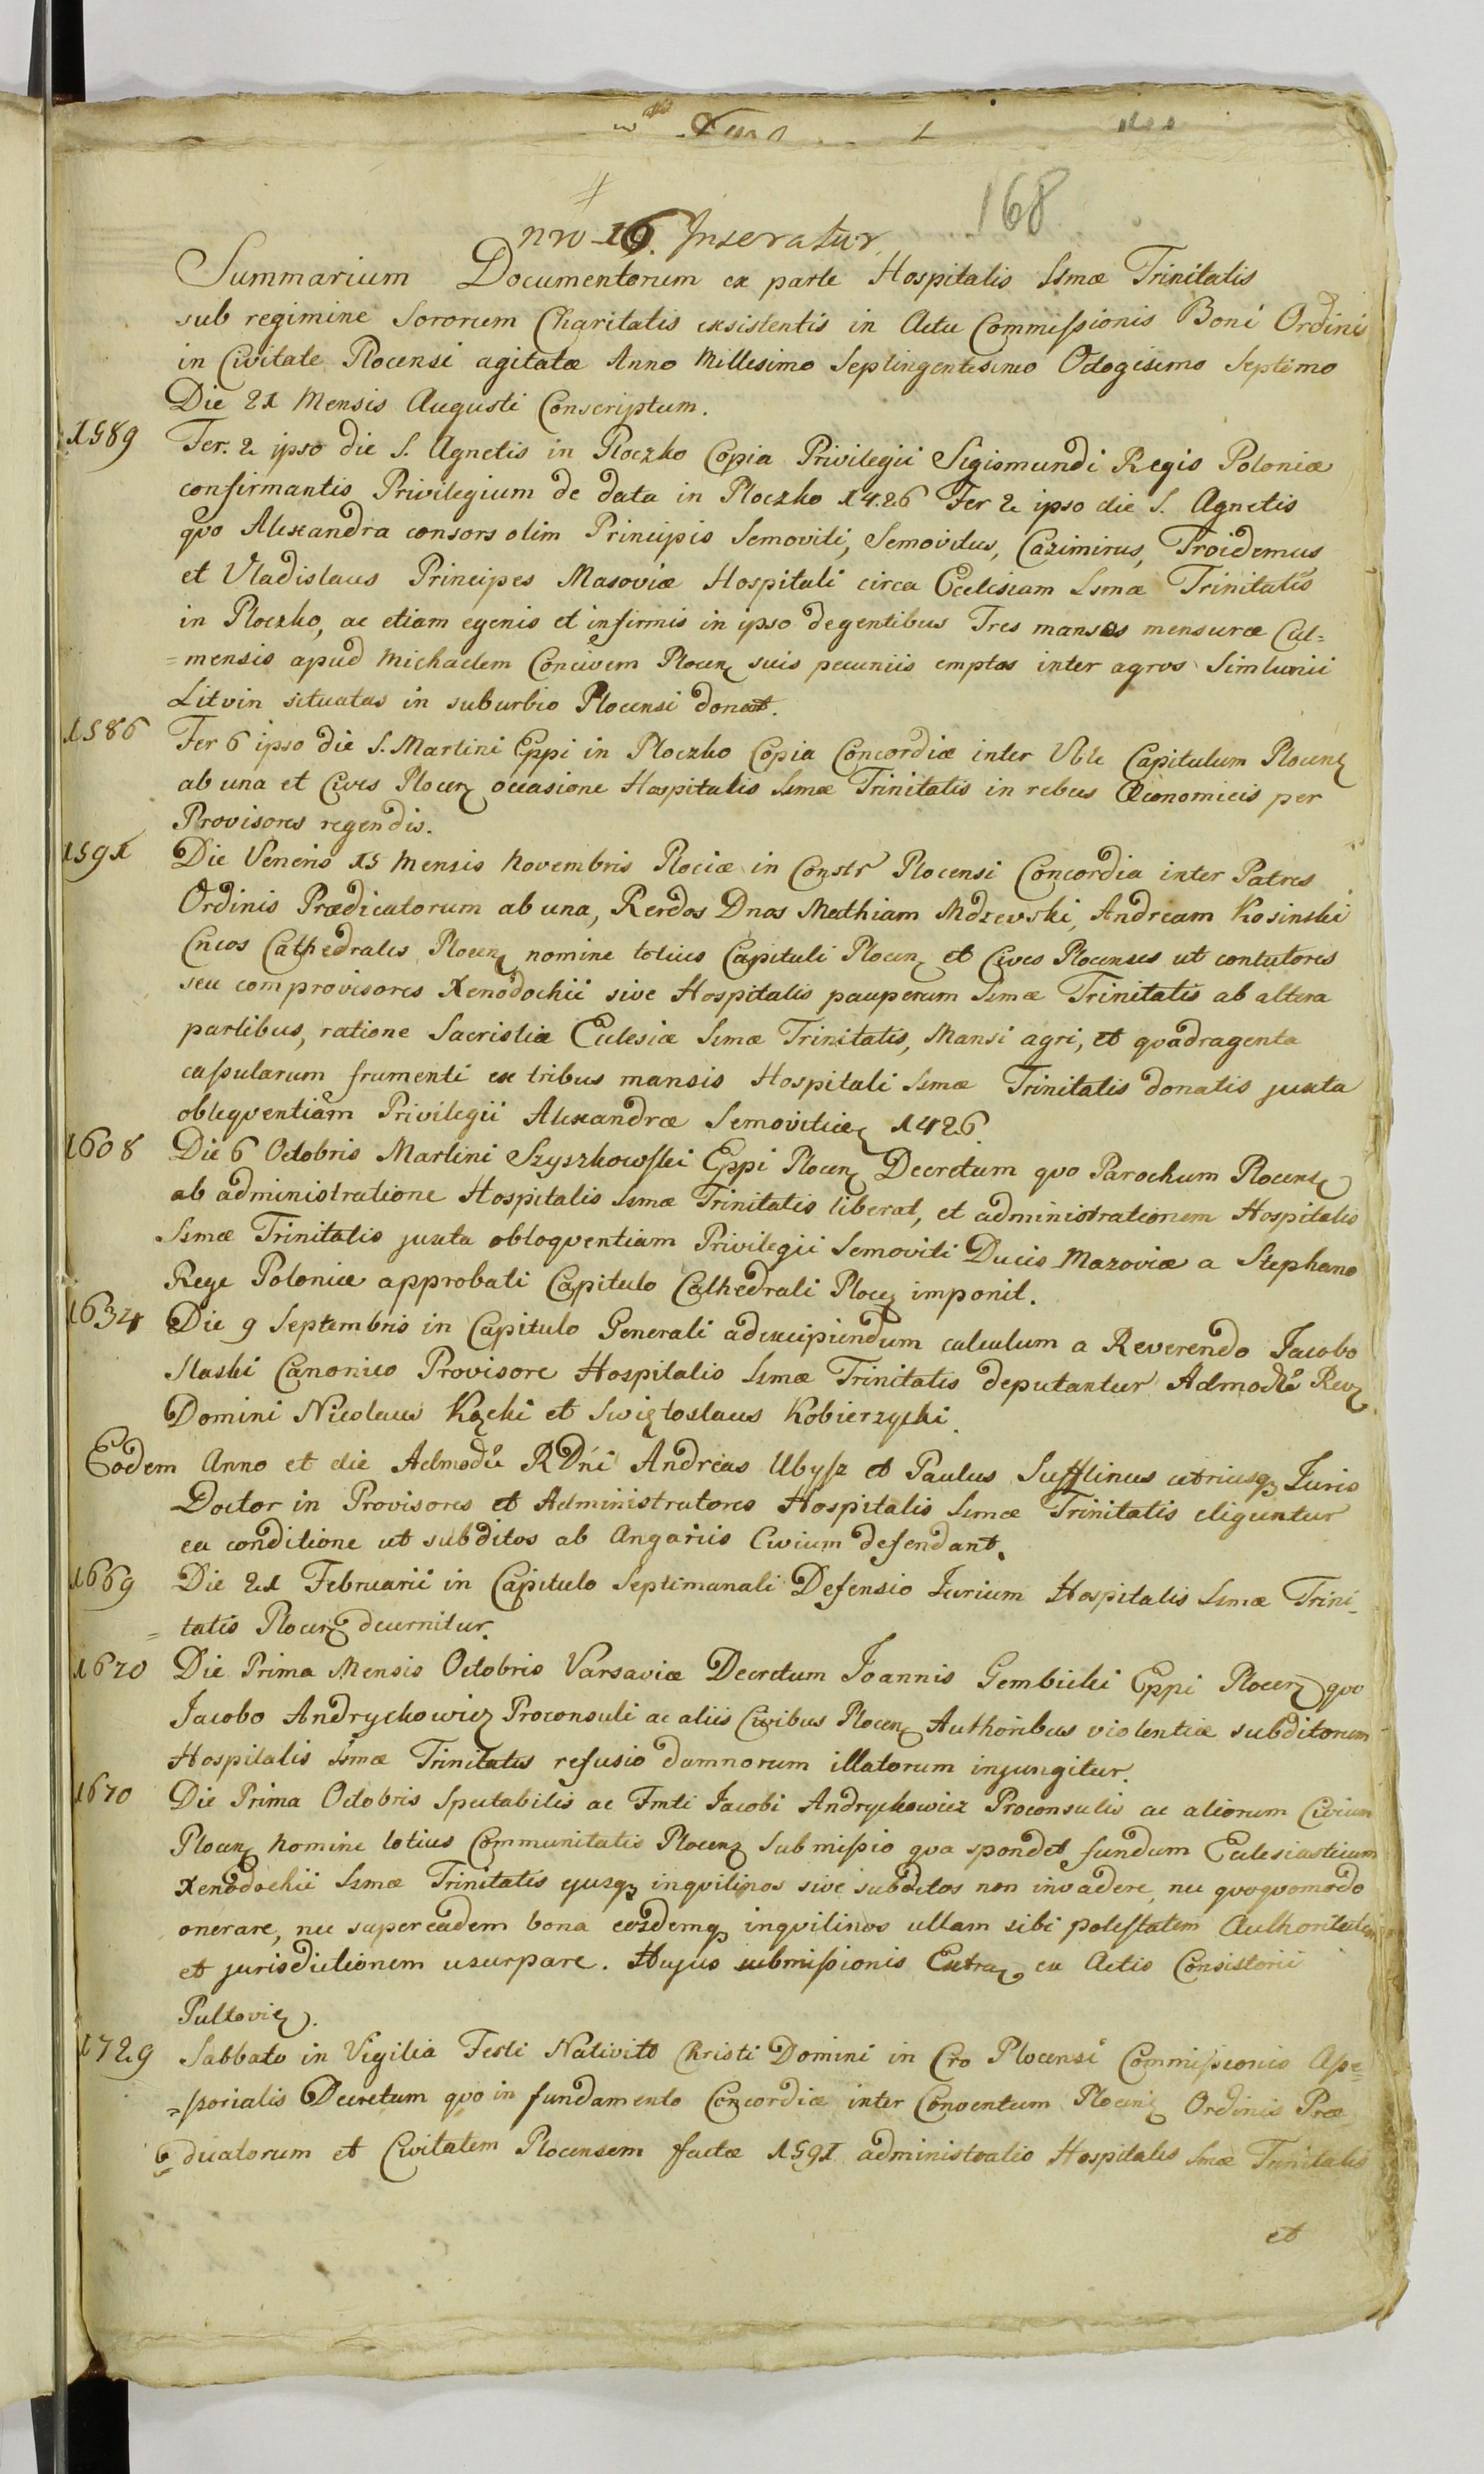 168
nro 16. Inseratur
Summarium Documentorum ex parte Hospitalis Ssmæ Trinitatis
sub regimine Sororum Charitatis exsistentis in Actu Commissionis Boni Ordinis
in Civitate Plocensi agitatæ Anno Millesimo Septingentesimo Octogesimo Septimo
Die 21 Mensis Augusti Conscriptum.
1589 Fer. 2 ipso die S. Agnetis in Ploczko Copia Privilegii Sigismundi Regis Poloniæ
confirmantis Privilegium de data in Ploczko 1426 Fer 2 ipso die S. Agnetis
qvo Alexandra consors olim Principis Semoviti, Semovitus, Cazimirus, Troidemus
et Vladislaus Principes Masoviæ Hospitali circa Ecclesiam Ssmæ Trinitatis
in Ploczko, ac etiam egenis et infirmis in ipso degentibus Tres mansos mensuræ Cul=
=mensis apud Michaelem Concivem Plocen suis pecuniis emptos inter agros Simlunii
Litvin situatas in suburbio Plocensi donat.
1586 Fer 6 ipso die S. Martini Eppi in Ploczko Copia Concordiæ inter Vble Capitulum Plocen
ab una et Cives Plocen occasione Hospitalis Ssmæ Trinitatis in rebus Œconomicis per
Provisores regendis.
1591 Die Veneris 15 Mensis Novembris Plociæ in Constr Plocensi Concordia inter Patres
Ordinis Prædicatorum ab una, Rerdos Dnos Mathiam Mdzevski, Andream Kosinski
Cncos Cathedrales Plocen nomine totius Capituli Plocen et Cives Plocenses ut contutores
seu comprovisores Xenodochii sive Hospitalis pauperum Ssmæ Trinitatis ab altera
partibus, ratione Sacristiæ Eclesiæ Ssmæ Trinitatis, Mansi agri, et qvadragenta
capsularum frumenti ex tribus mansis Hospitali Ssmæ Trinitatis donatis juxta
obleqventiam Privilegii Alexandræ Semoviticæ 1426.
1608 Die 6 Octobris Martini Szyszkowski Eppi Plocen Decretum qvo Parochum Plocens
ab administratione Hospitalis Ssmæ Trinitatis liberat, et administrationem Hospitalis
Ssmæ Trinitatis juxta obloqventiam Privilegii Semoviti Ducis Mazoviæ a Stephano
Rege Poloniæ approbati Capitulo Cathedrali Plocen imponit.
1634 Die 9 Septembris in Capitulo Generali ad excipiendum calculum a Reverendo Jacobo
Slaski Canonico Provisore Hospitalis Ssmæ Trinitatis deputantur Admodu Rev
Domini Nicolaus Kącki et Swiętoslaus Kobierzycki.
Eodem Anno et die Admodu RDni Andreas Ubysz et Paulus Sufflinus utriusq Juris
Doctor in Provisores et Administratores Hospitalis Ssmæ Trinitatis eliguntur
ea conditione ut subditos ab Angariis Civium defendant.
1669 Die 21 Februarii in Capitulo Septimanali Defensio Jurium Hospitalis Ssmæ Trini=
=tatis Plocen decernitur.
1670 Die Prima Mensis Octobris Varsaviæ Decretum Joannis Gembicki Eppi Plocen qvo
Jacobo Andrychowicz Proconsuli ac aliis Civibus Plocen Authoribus violentiæ subditorum
Hospitalis Ssmæ Trinitatis refusio damnorum illatorum injungitur.
1670 Die Prima Octobris Spectabilis ac Fmti Jacobi Andrychowicz Proconsulis ac aliorum Civium
Plocen nomine totius Communitatis Plocen Submissio qva spondet fundum Eclesiasticum
Xenodochii Ssmæ Trinitatis ejusq inqvilinos sive subditos non invadere, nec qvoqvomodo
onerare, nec super eadem bona eosdemq inqvilinos ullam sibi potestatem Authoritatem
et jurisdictionem usurpare. Hujus submissionis Extra ex Actis Consistorii
Pultovien.
1729 Sabbato in Vigilia Festi Nativitt Christi Domini in Cro Plocensi Commissionis Asse=
=ssorialis Decretum qvo in fundamento Concordiæ inter Conventum Plocens Ordinis Præ=
=dicatorum et Civitatem Plocensem factæ 1591 administratio Hospitalis Smæ Trinitatis
et